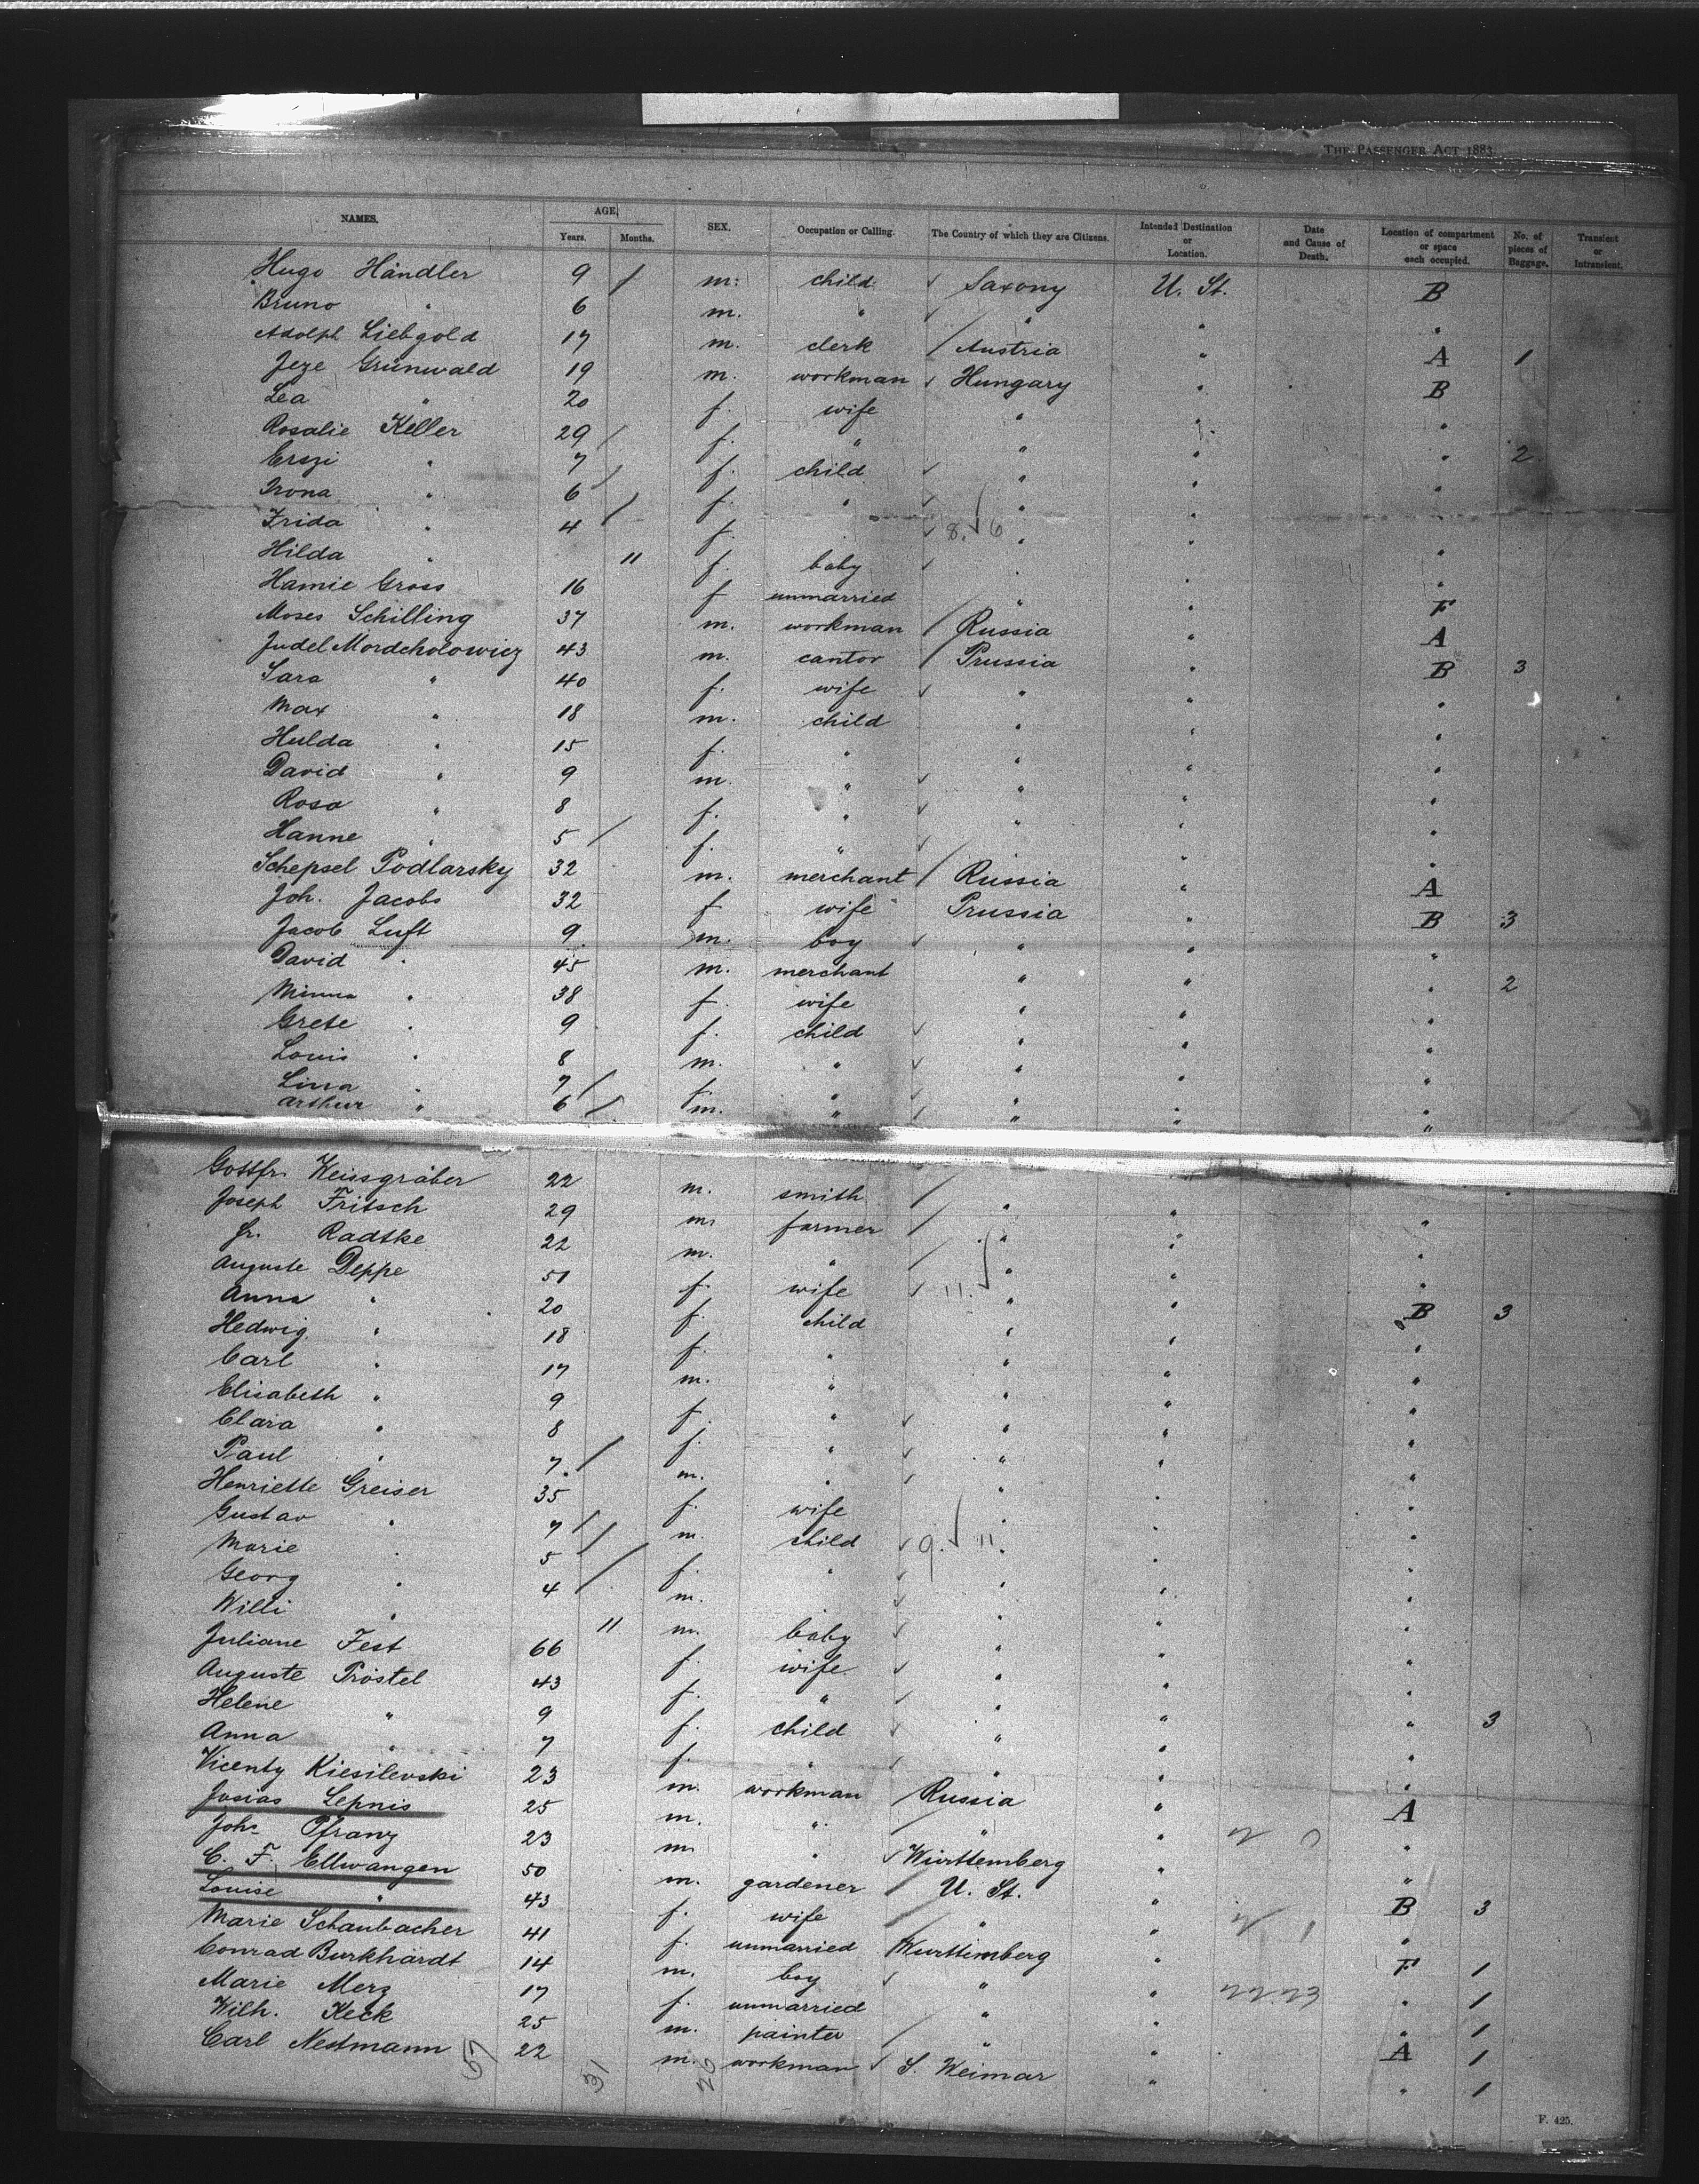 THE PASSENGER ACT 1883.
NAMES. AGE, Years. Months. SEX. Occupation or Calling. The Country of which they are Citizens. Intended Destination or Location. Date and Cause of Death. Location of compartment or space each occupied. No. of pieces of Baggage. Transient or Intransient.
Hugo Händler 9 / m. child ✓ Saxony U. St. B
Bruno " 6 m. " ✓ " " "
Adolph Liebgold 17 m. clerk / Austria " A 1
Jeze Grünwald 19 m. workman ✓ Hungary " B
Lea " 20 f. wife " " "
Rosalie Keller 29 / f. " " " " 2
Erszi " 7 / f. child ✓ " " "
Irona " 6 / f. " ✓ " "
Frida " 4 f. ✓ 8. √ 6 " " "
Hilda " 11 f. baby ✓ " "
Hamie Gross 16 f unmarried / " " F
Moses Schilling 37 m. workman / Russia " A
Judel Mordcholowicz 43 m. cantor / Prussia " B 3
Sara " 40 f. wife ✓ " " "
Max " 18 m. child " " "
Hulda " 15 f. " " " "
David " 9 m. " ✓ " " "
Rosa " 8 f. " ✓ " " "
Hanne " 5 / f. " ✓ " "
Schepsel Podlarsky 32 m. merchant / Russia " A
Joh. Jacobs 32 f wife Prussia " B 3
Jacob Luft 9 m. boy ✓ " " "
David " 45 m. merchant " " " 2
Minna " 38 f. wife " " "
Grete " 9 f. child ✓ " " "
Louis " 8 m. " ✓ " " "
Lina " 7 / f. " ✓ " " "
Arthur " 6 / m. " ✓ " " "
Gottfr. Weissgräber 22 m. smith / " " "
Joseph Fritsch 29 m. farmer / " " "
Fr. Radtke 22 m. " / " " "
Auguste Deppe 51 f. wife ✓ 11. √ " " B 3
Anna " 20 f. child " " "
Hedwig " 18 f. " " " "
Carl " 17 m. " " " "
Elisabeth " 9 f. " ✓ " " "
Clara " 8 f. " ✓ " " "
Paul " 7. / m. " ✓ " " "
Henriette Greiser 35 f. wife " " "
Gustav " 7 / m. child ✓ 9. √ 11. " "
Marie " 5 / f. " ✓ " " "
Georg " 4 / m. ✓ " " "
Willi " 11 m. baby ✓ " " "
Juliane Fest 66 f. wife ✓ " " "
Auguste Pröstel 43 f. " ✓ " " " 3
Helene " 9 f. child ✓ " " "
Anna " 7 f. " ✓ " " "
Vicenty Kiesilevski 23 m. workman / Russia " A
Josias Lepnis 25 m. " / " " "
Joh. Pfranz 23 m. " ✓ Württemberg " "
C. F. Ellwangen 50 m. gardener / U. St. " B 3
Louise " 43 f. wife / " " "
Marie Schaubacher 41 f. unmarried / Württemberg " F 1
Conrad Burkhardt 14 m. boy ✓ " " " 1
Marie Merz 17 f. unmarried " " " 1
Wilh. Keck 25 m. painter / " " A 1
Carl Nestmann 22 m. workman ✓ S. Weimar " " 1
57 31 26
F. 425.